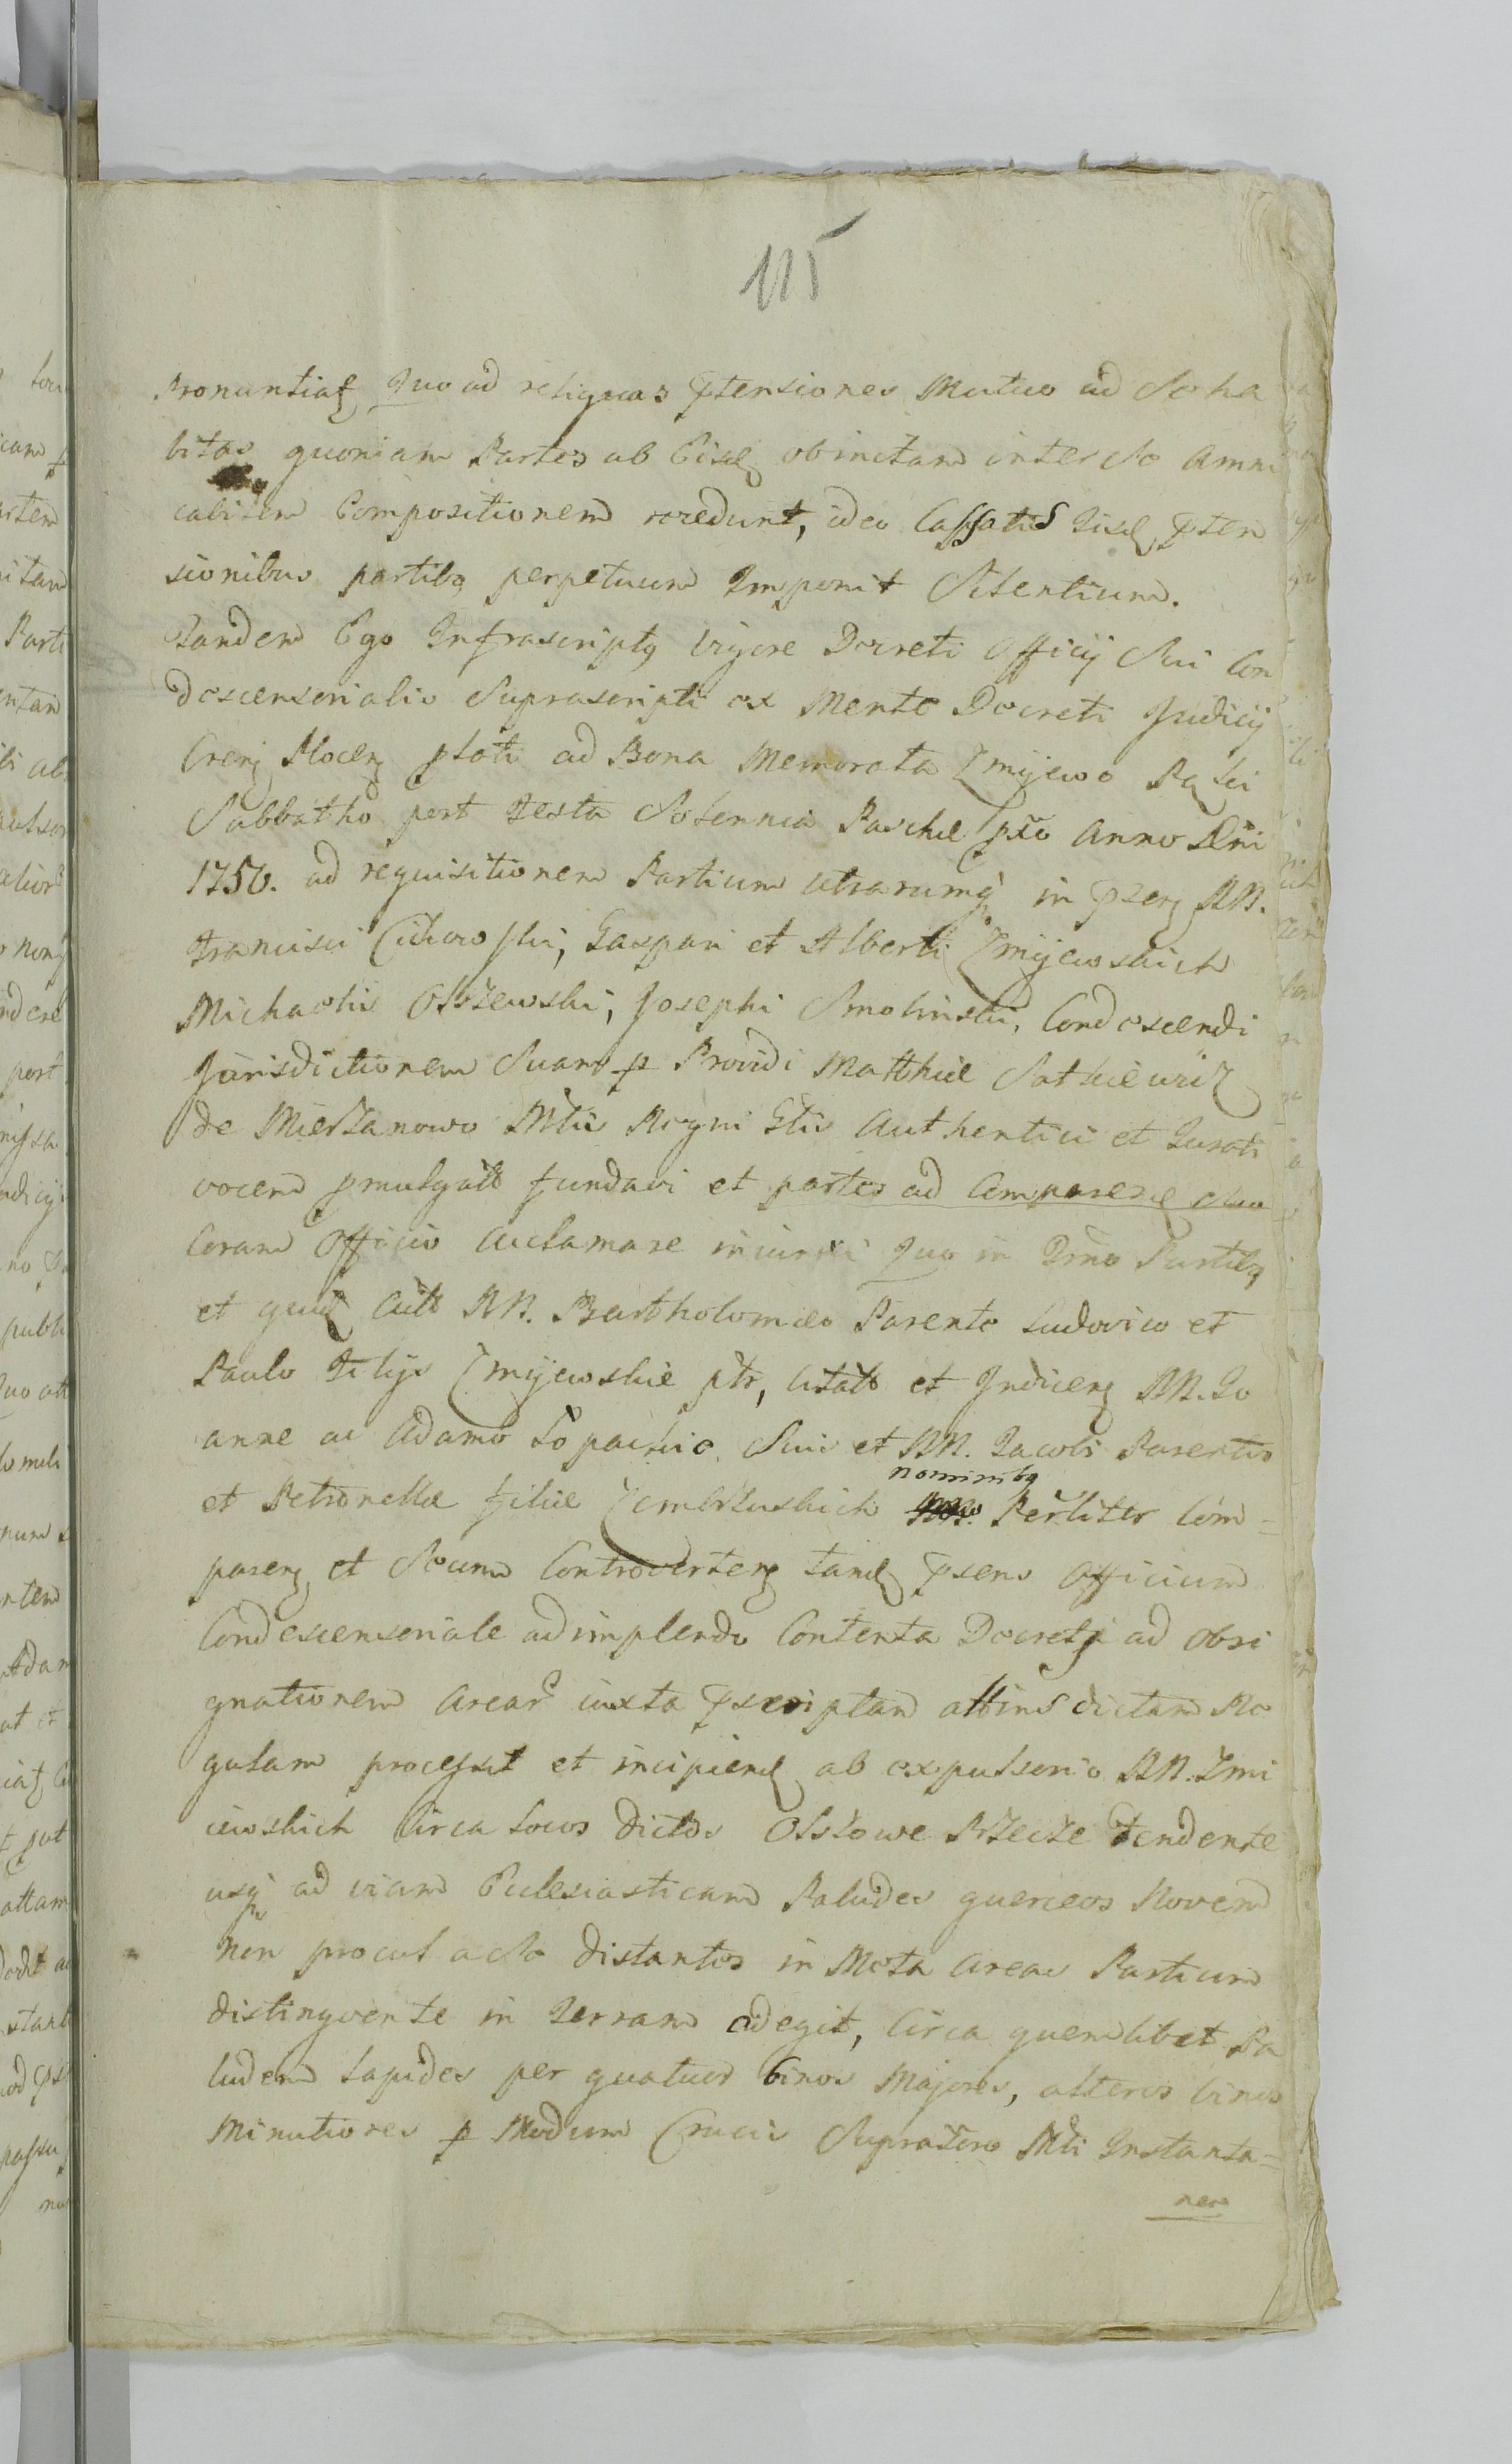 115
Pronuntiat Quo ad reliquas ptensiones Mutuo ad Se ha
bitas quoniam Partes ab Eisd obinitam inter Se Ami
cabilem Compositionem recedunt, ideo Cassatis Iisd pten
sionibus partibq perpetuum Imponit Silentium.
Tandem Ego Infrascriptq vigore Decreti Officij Sui Con
descensorialis Suprascripti ex Mente Decreti Judicij
Cren Plocen plati ad Bona Memorata Zmijewo
Sabbatho post Festa Solennia Paschæ pto Anno Dni
1756. ad requisitionem Partium utrarumq in psen NN.
Francisci Cichowski, Gaspari et Alberti Zmijewskich
Michaelis Olszewski, Josephi Smolinski, Condescendi
Jurisdictionem Suam p Providi Matthiæ
de Mierzanowo Mtii Regni Gtis Authentici et Jurati
vocem pmulgatt fundavi et partes ad Comparend
Coram Officio acclamare iniunxi Quo in Tmo Partibq
et quid Citt NN. Bartholomæo Parente Ludovico et
Paulo Filijs Zmijewskie ptr, Citatt et Indicen NN. Jo
anne ac Adamo Łopackie Suis et NN. Jacobi Parentis
et Petronellæ Filiæ Zembrzuskich nominibq Perliter Com=
paren et Secum Controverten tand psens Officium
Condescensoriale adimplendo Contenta Decreti ad obsi
gnationem arear iuxta pscriptam attins dictam Re
gulam processit et incipiend ab expulsorio NN. Zmi
iewskich Circa Locos dictos Olszowe Przecze tendente
usq ad viam Ecclesiasticam Paludes querceos Novem
non procul a Se distantes in Meta areas Partium
distingvente in terram adegit, Circa quemlibet Pa
ludem Lapides per quatuor binos Majores, alteros binos
Minutiores p Modum Crucis Mtti Instanta=
neo